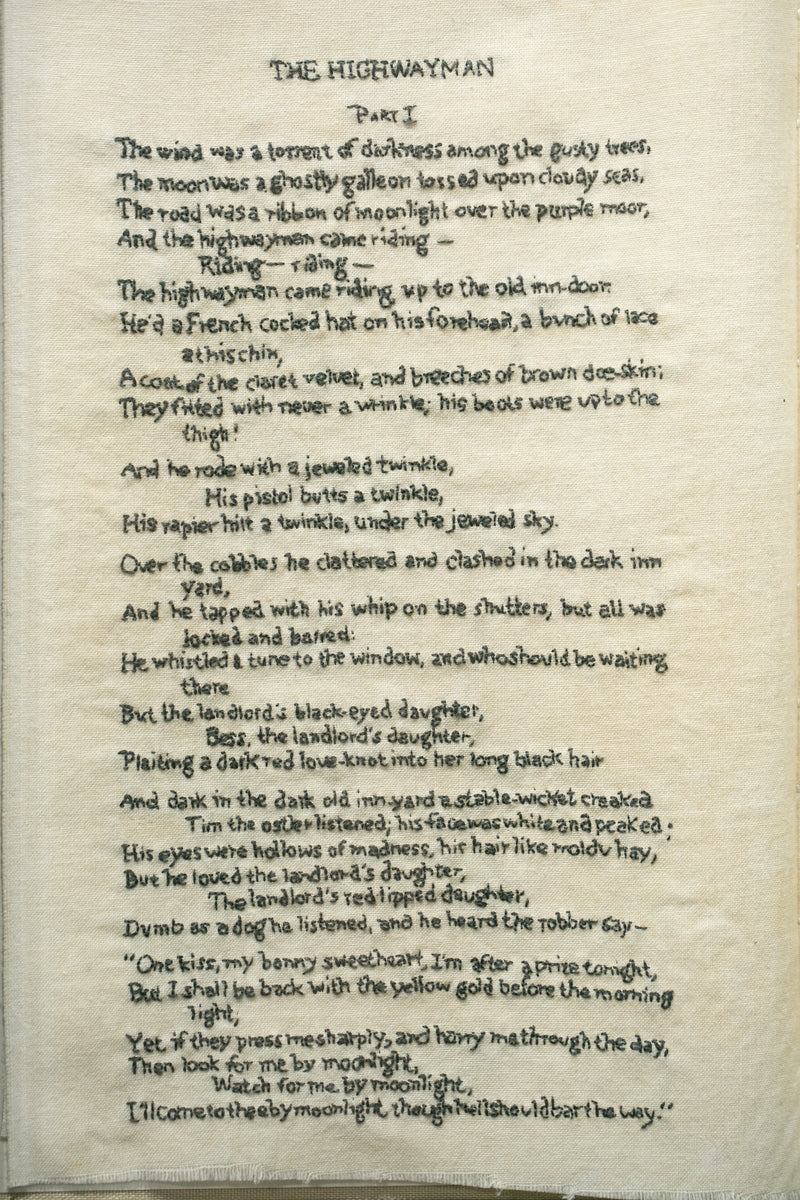 THE HIGHWAYMAN
PART I
The wind was a torrent of darkness among the gusty trees,
The moon was a ghostly galleon tossed upon cloudy seas,
The road was a ribbon of moonlight over the purple moor,
And the highwayman came riding —
Riding — riding —
The highwayman came riding, up to the old inn-door.
He'd a French cocked hat on his forehead, a bunch of lace
at his chin,
A coat of the claret velvet, and breeches of brown doe-skin;
They fitted with never a wrinkle; his boots were up to the
thigh!
And he rode with a jeweled twinkle,
His pistol butts a twinkle,
His rapier hilt a twinkle, under the jeweled sky.
Over the cobbles he clattered and clashed in the dark inn
yard,
And he tapped with his whip on the shutters, but all was
locked and barred:
He whistled a tune to the window, and who should be waiting
there
But the landlord's black-eyed daughter,
Bess, the landlord's daughter,
Plaiting a dark red love-knot into her long black hair
And dark in the dark old inn-yard a stable-wicket creaked
Tim the ostler listened; his face was white and peaked;
His eyes were hollows of madness, his hair like moldy hay,
But he loved the landlord's daughter,
The landlord's red lipped daughter,
Dumb as a dog he listened, and he heard the robber say—
"One kiss, my bonny sweetheart, I'm after a prize tonight,
But I shall be back with the yellow gold before the morning
light,
Yet, if they press me sharply, and harry me through the day,
Then look for me by moonlight,
Watch for me by moonlight,
I'll come to thee by moonlight, though hell should bar the way."